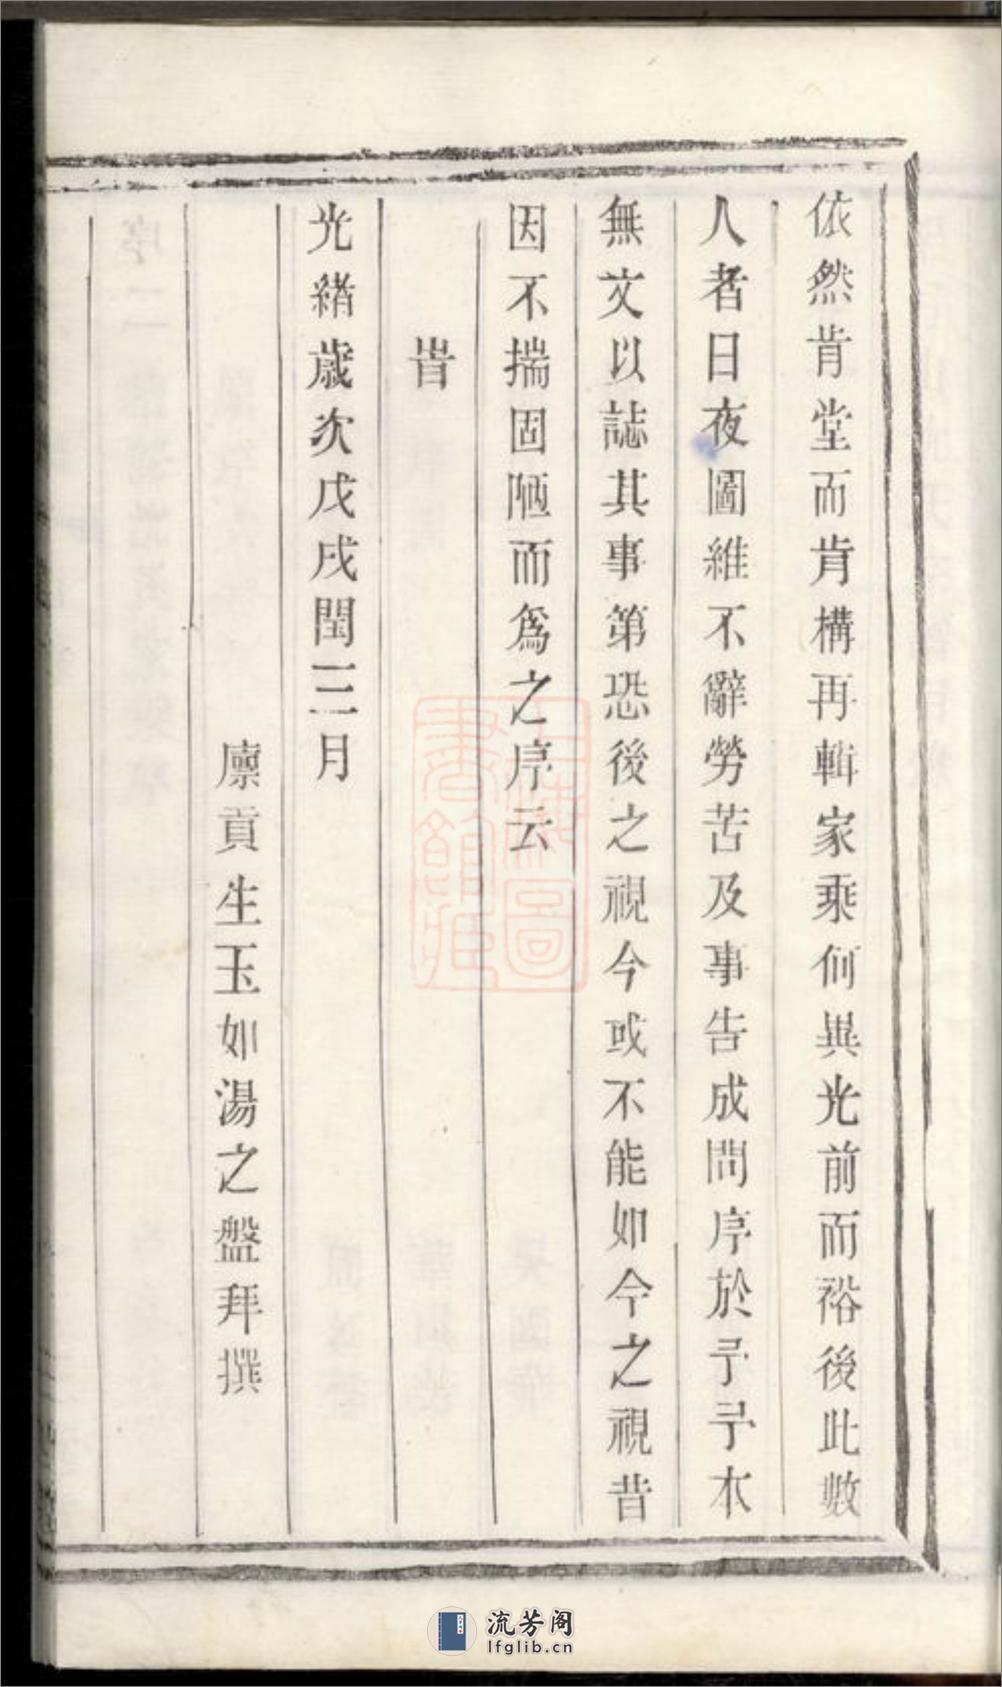 依然肯堂而肯構再輯家乘何異光前而裕後此數
人者日夜圖維不辭勞苦及事告成問序於予予本
無文以誌其事第恐後之視今或不能如今之視昔
因不揣固陋而爲之序云
旹
光緒歲次戊戌閏三月
廩貢生玉如湯之盤拜撰
上海圖
書館藏
流芳阁
lfglib.cn